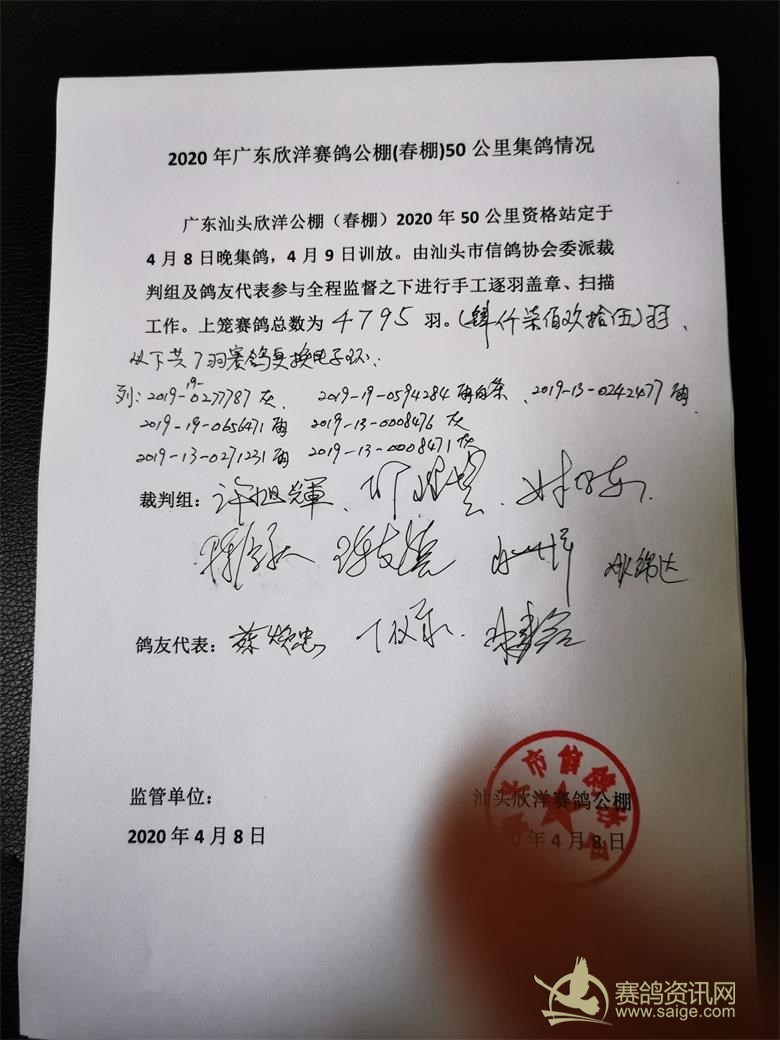 2020年广东欣洋赛鸽公棚(春棚)50公里集鸽情况
广东汕头欣洋公棚（春棚）2020年50公里资格站定于
4月8日晚集鸽，4月9日训放。由汕头市信鸽协会委派裁
判组及鸽友代表参与全程监督之下进行手工逐羽盖章、扫描
工作。上笼赛鸽总数为 4795 羽。(肆仟柒佰玖拾伍)羽、
以下共7羽赛鸽更换电子环:
列: 2019-19-0277787灰、 2019-19-0594284雨白条、2019-13-0242477雨
2019-19-0656471雨 2019-13-0008476灰
2019-13-0271231雨 2019-13-0008471灰
裁判组: 许旭辉、
鸽友代表:
监管单位: 汕头欣洋赛鸽公棚
2020年4月8日 年4月8日
市信鸽协会
赛鸽资讯网
www.saige.com